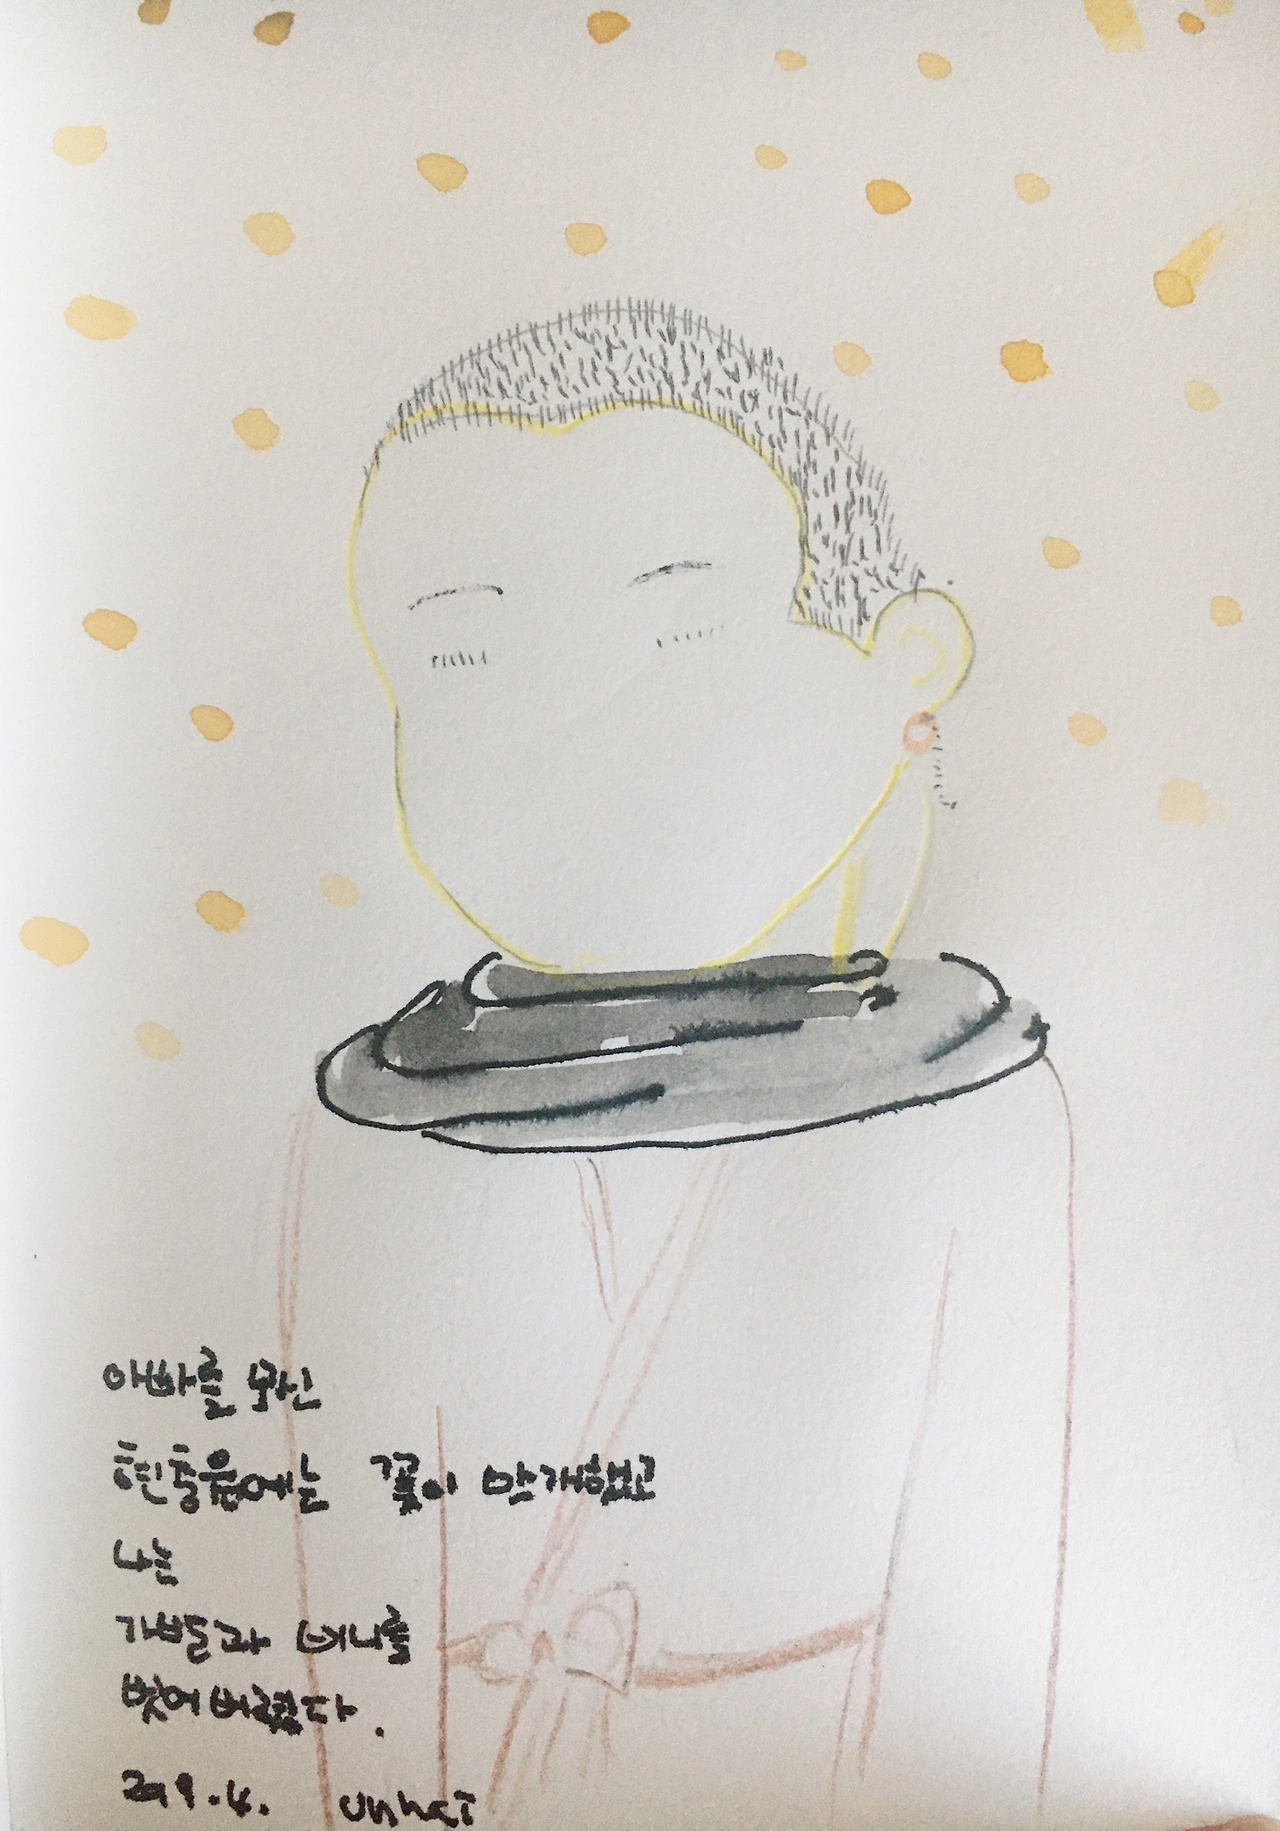 아빠를 뫼신
현충원에는 꽃이 만개했고
나는
가벼웁과 비니를
벗어버렸다.
2019.4. unhaI